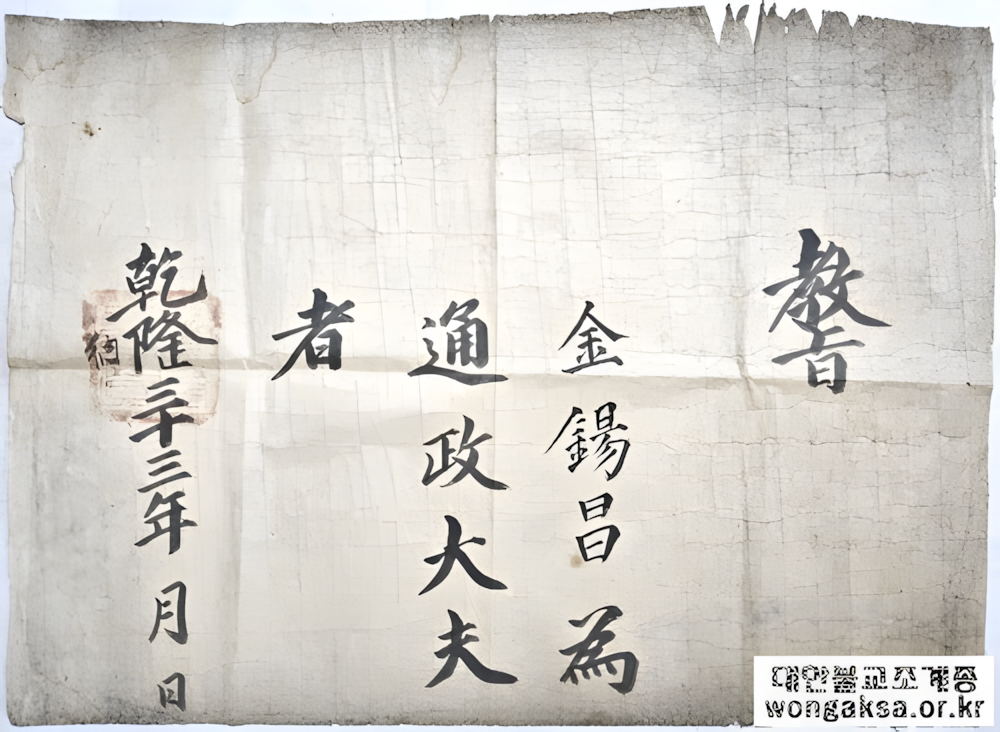 教旨
金鍚昌為
通政大夫
者
乾隆三十三年 月 日
대한불교조계종
wongaksa.or.kr